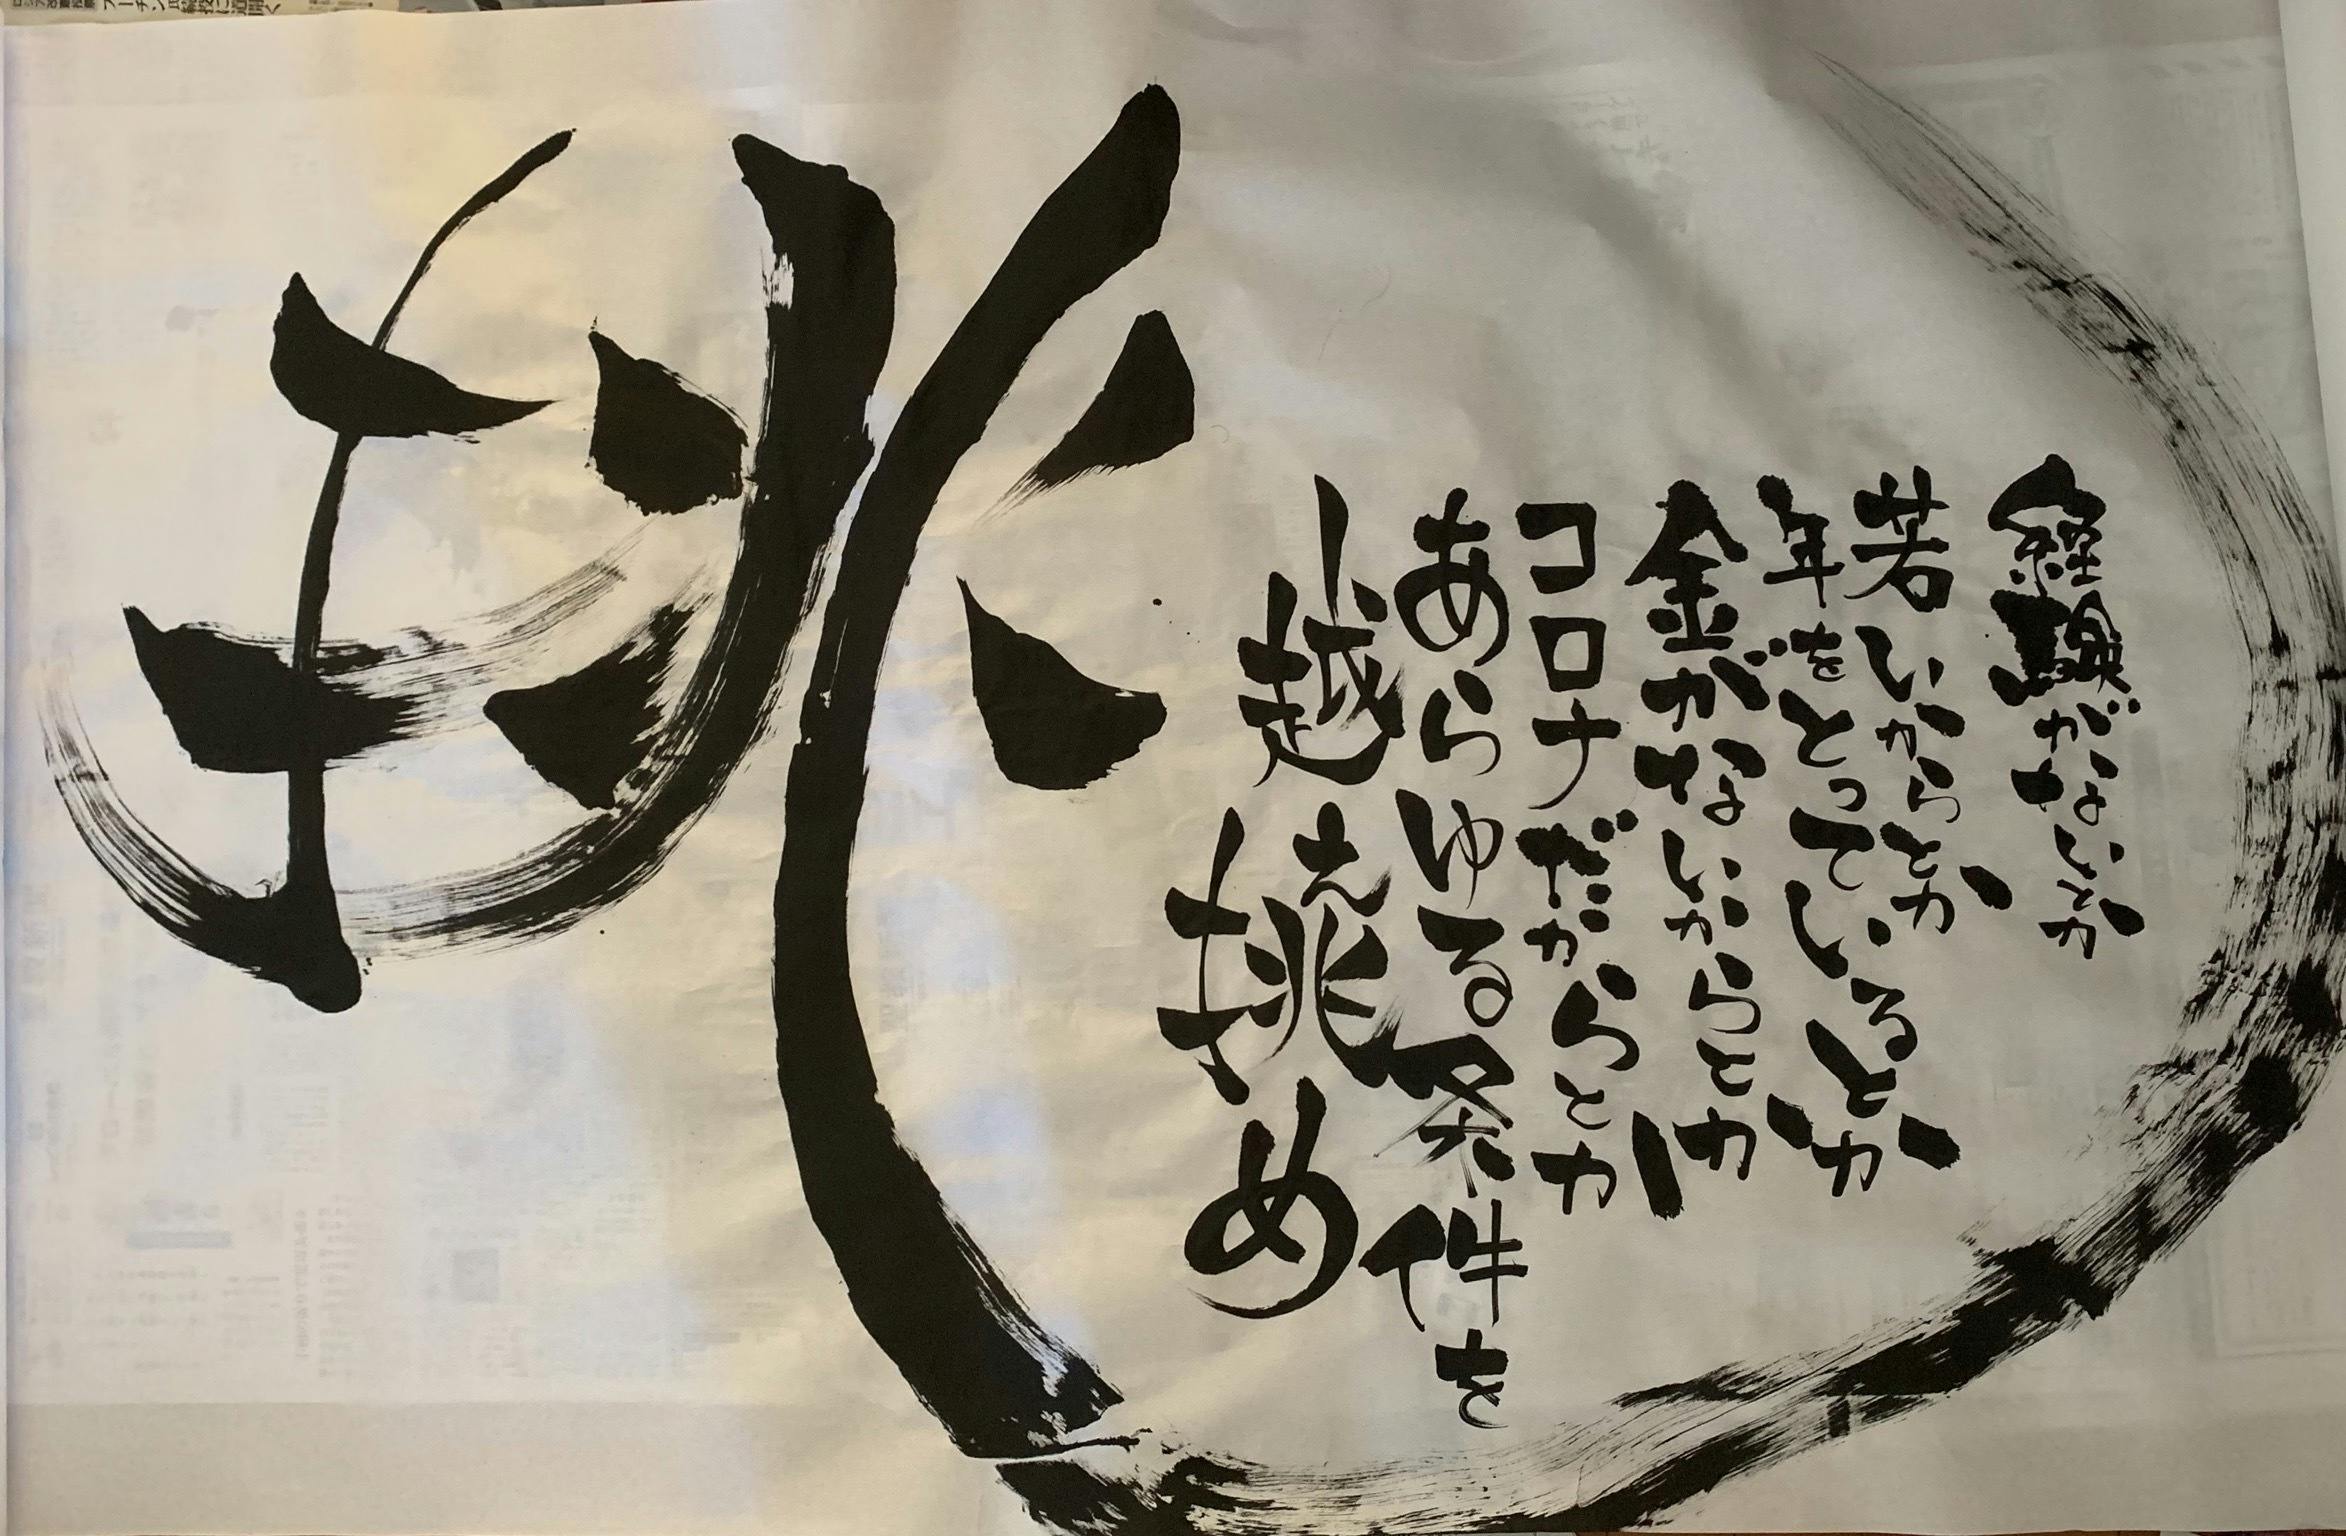 挑
経験がないとか
若いからとか、
年をとっているとか、
金がないからとか、
コロナだからとか
あらゆる条件を
越え挑め